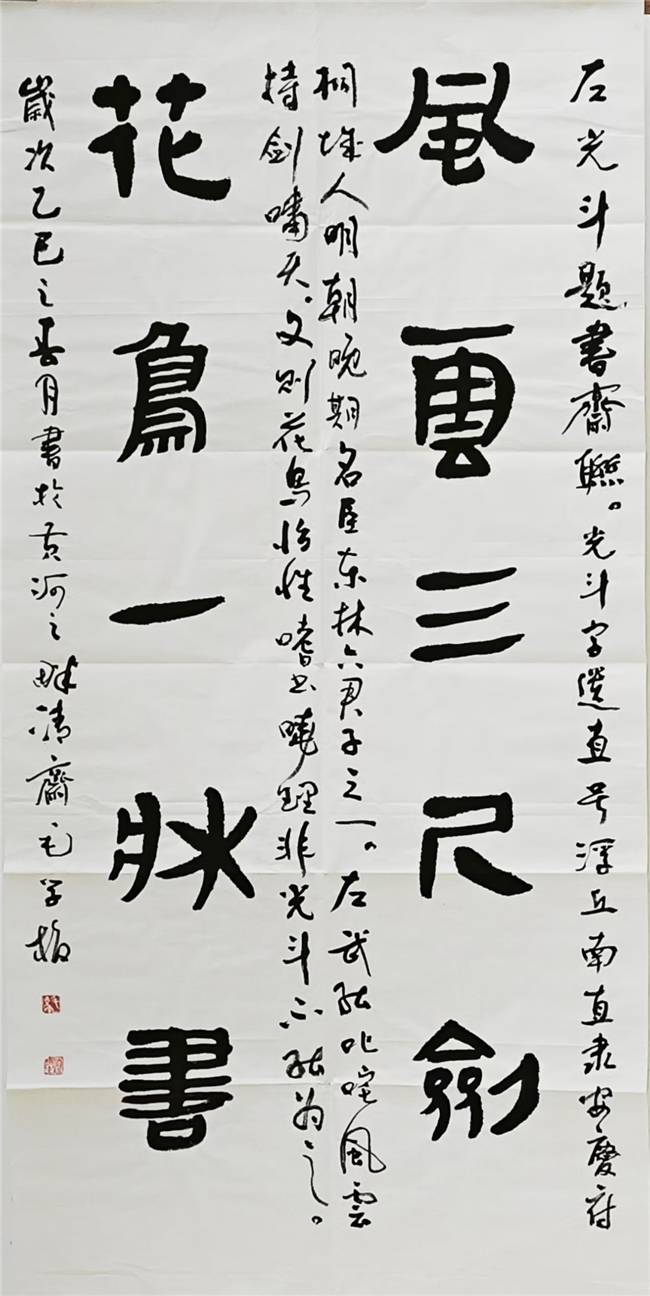 左光斗題書齋聯。光斗字遺直号浮丘南直隶安慶府
風雲三尺劍
桐城人明朝晚期名臣东林六君子之一。左武能叱咤風雲
持剑嘯天。文则花鸟怡性嗜书曉理非光斗不能为之。
花鳥一牀書
歲次乙巳之春月書於黄河之畔清齋毛学